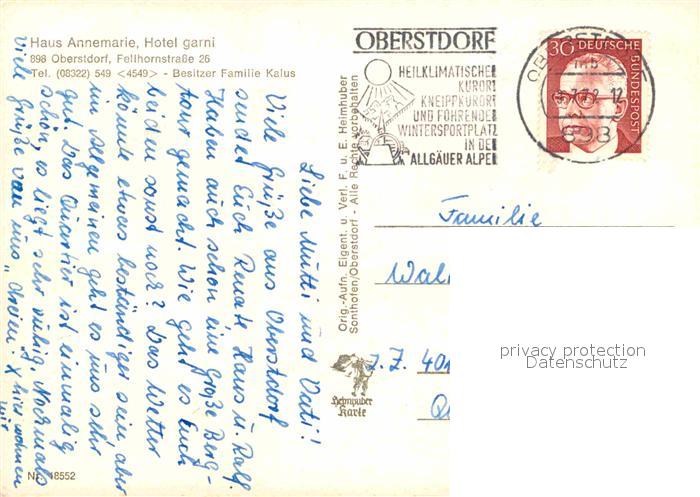 Haus Annemarie, Hotel garni
898 Oberstdorf, Fellhornstraße 26
Tel. (08322) 549 <4549> - Besitzer Familie Kalus
Liebe Mutti und Vati!
Viele Grüße aus Oberstdorf
sendet Euch Renate Klaus u. Ralf.
Haben auch schon eine große Berg-
tour gemacht. Wie geht es Euch
beiden sonst noch? Das Wetter
könnte etwas beständiger sein, aber
im Allgemeinen geht es uns sehr
gut. Das Quartier ist einmalig
schön, es liegt sehr ruhig. Nochmals
viele Grüße von uns „dreien"
X hier wohnen
wir
Nr. 18552
Orig.-Aufn. Eigent. u. Verl. F. u. E. Heimhuber
Sonthofen/Oberstdorf - Alle Rechte vorbehalten
Heimhuber
Karte
OBERSTDORF
HEILKLIMATISCHER
KURORT
KNEIPPKURORT
UND FÜHRENDER
WINTERSPORTPLATZ
IN DEN
ALLGÄUER ALPEN
30 DEUTSCHE
BUNDESPOST
OBERSTDORF
898
Familie
Wal
z.Z. 401
privacy protection
Datenschutz